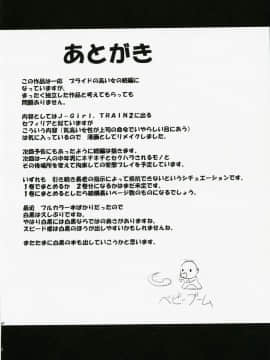 あとがき
この作品は一応　プライドの高い女の続編に
なっていますが、
まったく独立した作品と考えてもらっても
問題ありません。
内容としてはJ-Girl. TRAIN2に出る
セフィリアと似ていますが
こういう内容（気高い女が上司の命令でいやらしい目にあう）
は気に入っているので　漫画としてリメイクしました。
次回予告にもあったように続編は描きます。
次回は一人の中年男に
いずれも　引き続き長老の指示によって抵抗できないというシチュエーションです。
1冊でまとめるか　2冊分になるかはまだ未定です。
1冊でまとめるなら結構長いページ数のものになるでしょう。
最近　フルカラー本ばかりだったので
白黒は久しぶりですね。
やはり白黒には白黒ならではの良さがありますね。
スピード感は白黒のほうが出しやすいかもしれませんね。
またたまに白黒の本も出していこうかと思います。
ベビーブーム